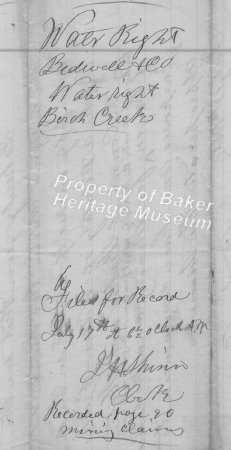 Water Right
Bedwell & Co
Water right
Birch Creek
Property of Baker
Heritage Museum
Filed for Record
July 17th at 6½ o clock A.M
Clerk
Recorded page 90
mining claims